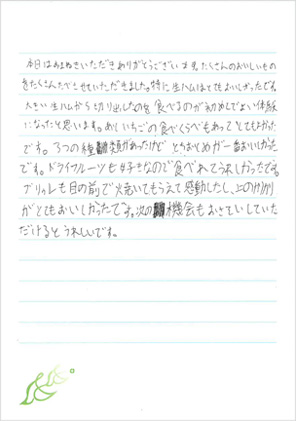 本日はおまねきいただきありがとうございます。たくさんのおいしいもの
をたくさんたべさせていただきました。特に生ハムはとてもおいしかったです。
大きい生ハムから切り出したのを食べるのが初めてでよい体験
になったと思います。あといちごの食べくらべもあってとてもよかった
です。3つの種類があったけどとちおとめが一番おいしかった
です。ドライフルーツも好きなので食べれてうれしかったです。
ブリュレも目の前で火焼いてもらえて感動したし、上のカリカリ
がとてもおいしかったです。次の機会もおさそいしていた
だけるとうれしいです。